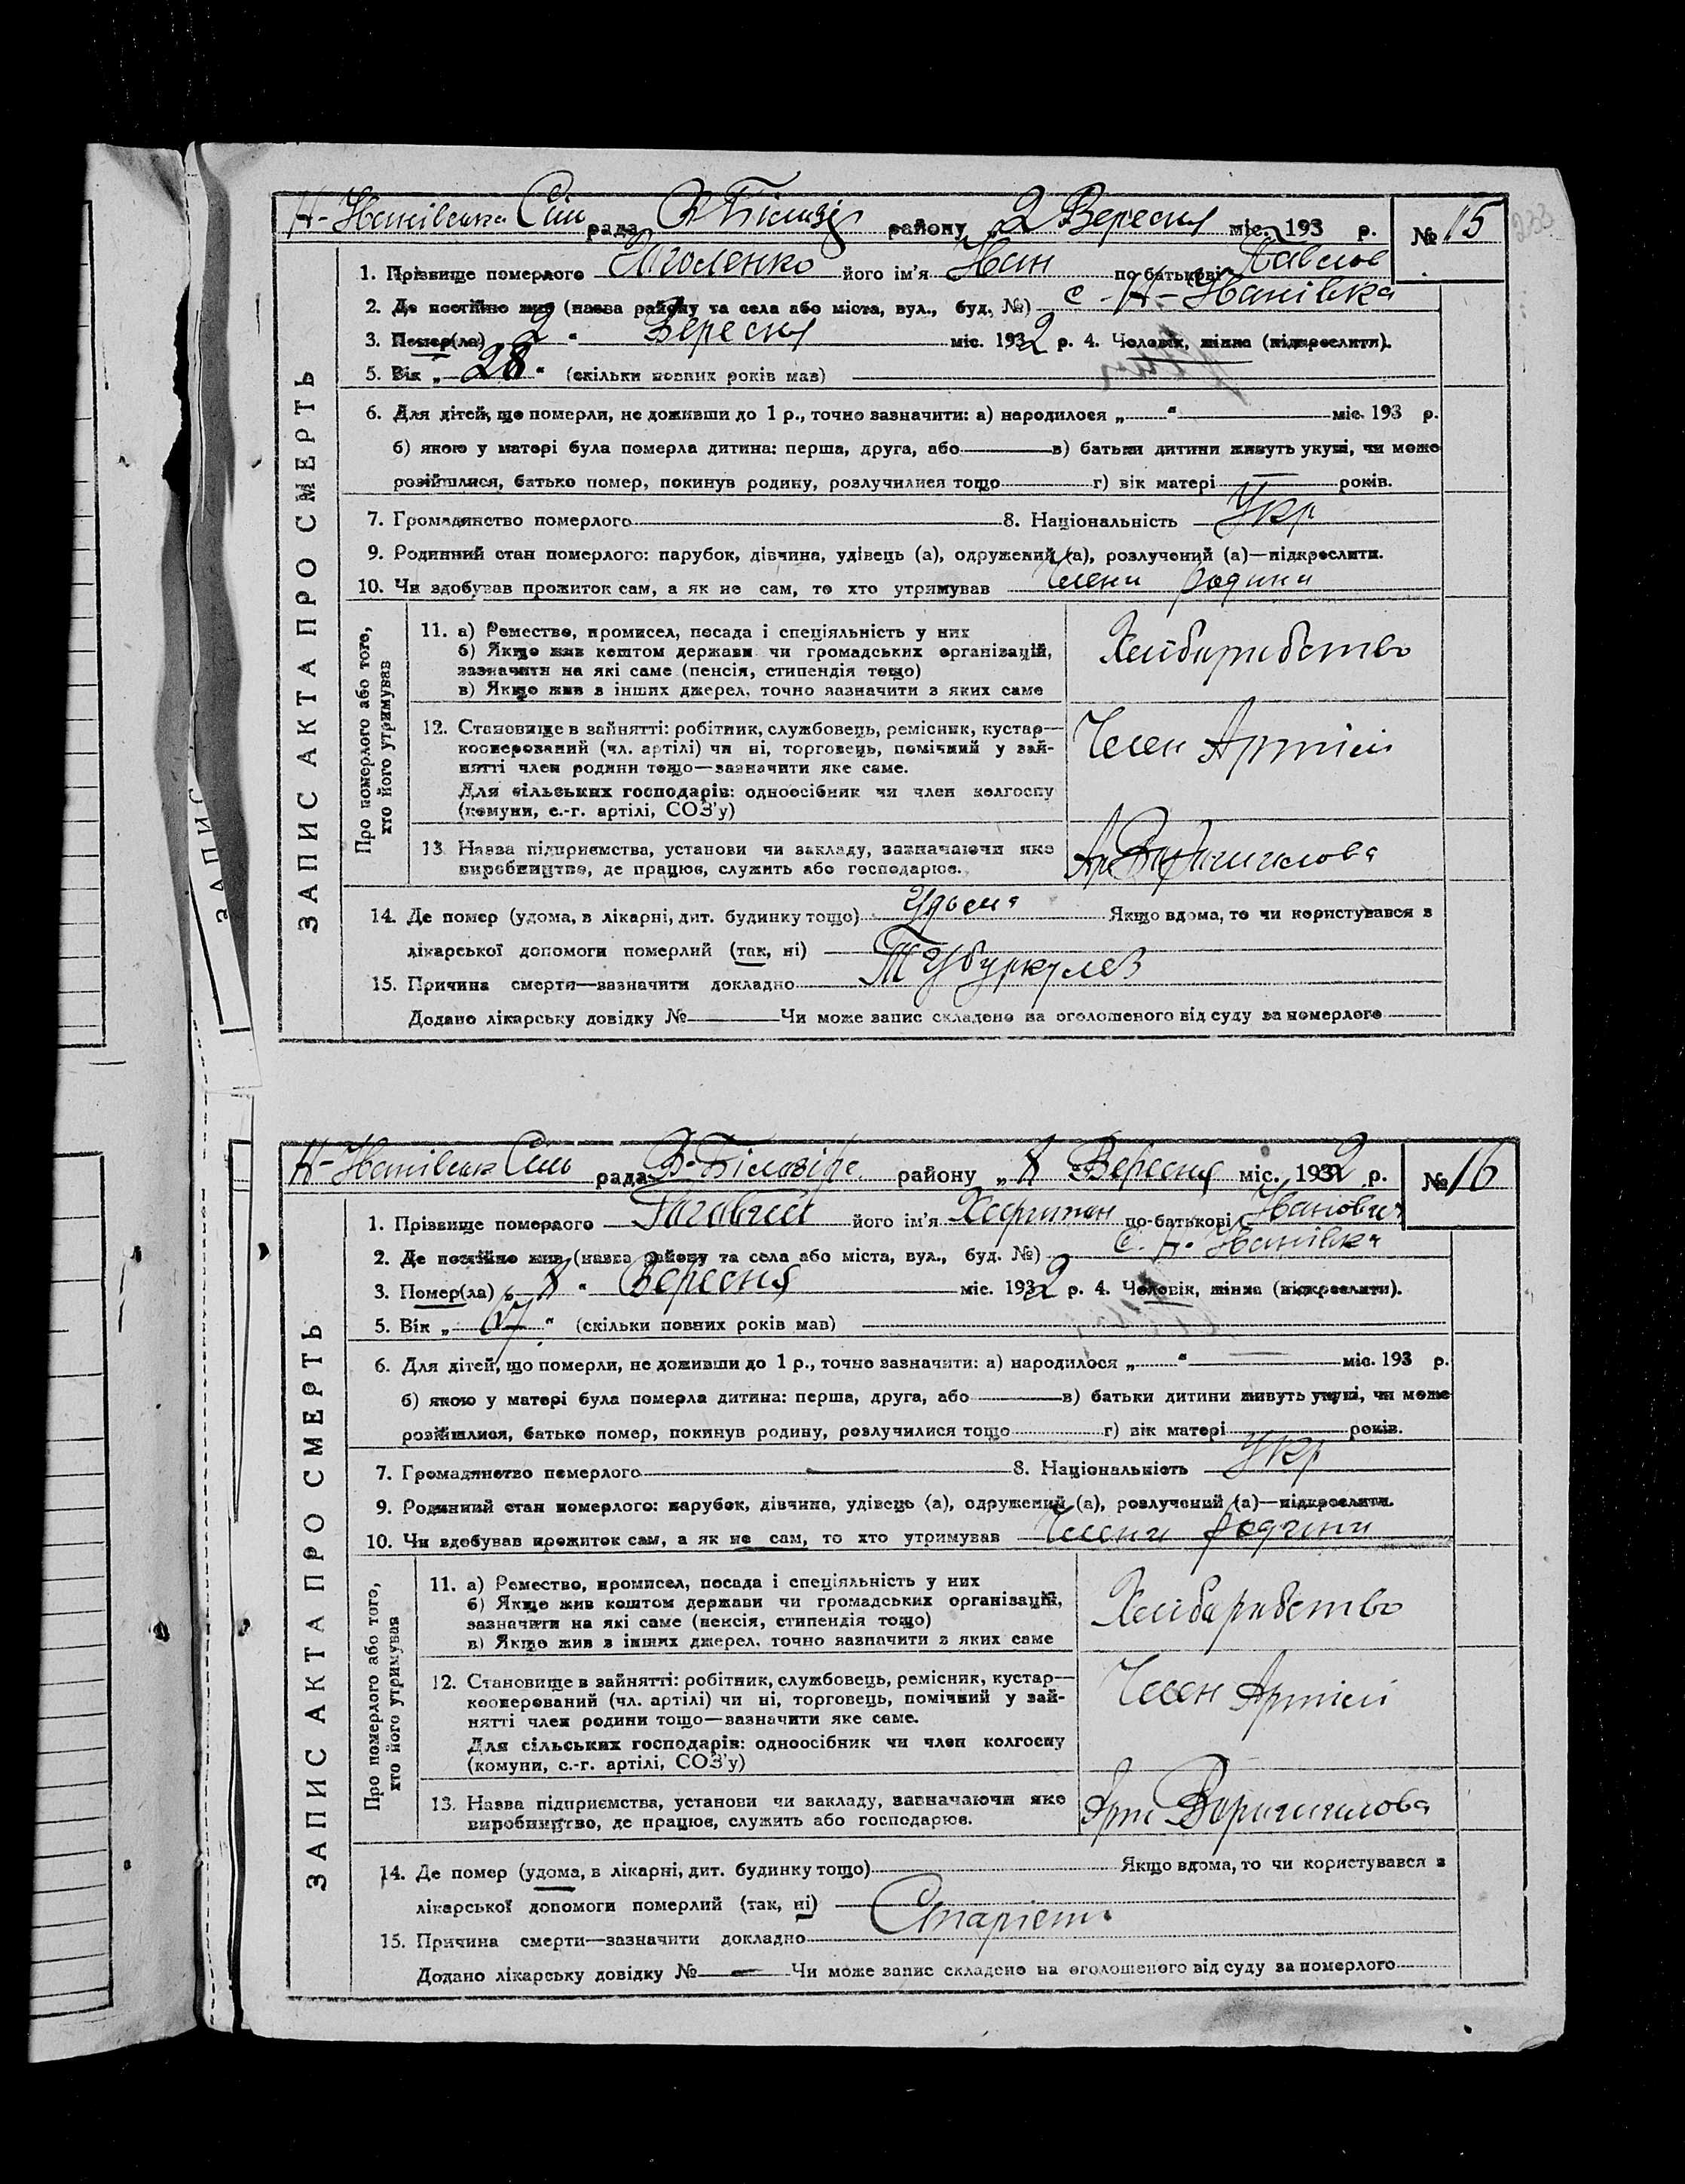 Н-Іванівська Сіль рада В-Біловізр району „2 Вересня міс. 193 р. № 15
233
1. Прізвище померлого його ім'я Іван по батькові Павлов
2. Де постійно жив (назва району та села або міста, вул., буд. №) с. Н-Іванівка
3. Помер(ла) 2 “ Вересня міс. 1932 р. 4. Чоловік, жінка (підкреслити).
5. Вік „ 28 “ (скільки повних років мав)
6. Для дітей, що померли, не доживши до 1 р., точно зазначити: а) народилося „ “ міс. 193 р.
б) якою у матері була померла дитина: перша, друга, або в) батьки дитини живуть укупі, чи може
розійшлися, батько помер, покинув родину, розлучилися тощо г) вік матері років.
7. Громадянство померлого 8. Національність Укр
9. Родинний стан померлого: парубок, дівчина, удівець (а), одружений (а), розлучений (а)—підкреслити.
10. Чи здобував прожиток сам, а як не сам, то хто утримував Члени родини
ЗАПИС АКТА ПРО СМЕРТЬ
Про померлого або того,
хто його утримував
11. а) Ремество, промисел, посада і спеціяльність у них
б) Якщо жив коштом держави чи громадських організацій,
зазначити на які саме (пенсія, стипендія тощо)
в) Якщо жив з інших джерел, точно зазначити з яких саме
Хліборобство
12. Становище в зайнятті: робітник, службовець, ремісник, кустар—
кооперований (чл. артілі) чи ні, торговець, помічний у зай-
нятті член родини тощо—зазначити яке саме.
Для сільських господарів: одноосібник чи член колгоспу
(комуни, с.-г. артілі, СОЗ'у)
Член Артілі
13. Назва підприємства, установи чи закладу, зазначаючи яке
виробництво, де працює, служить або господарює.
Ар Ворошилова
14. Де помер (удома, в лікарні, дит. будинку тощо) Удома Якщо вдома, то чи користувався з
лікарської допомоги померлий (так, ні)
15. Причина смерти—зазначити докладно Тубуркулез
Додано лікарську довідку № Чи може запис складено на оголошеного від суду за померлого
ЗАПИС
Н-Іванівськ Сіль рада В-Біловізр. району „8 Вересня міс. 1932 р. № 16
1. Прізвище померлого його ім'я Харитон по-батькові Іванович
2. Де постійно жив (назва району та села або міста, вул., буд. №) с. Н. Іванівка
3. Помер(ла) „ 8 “ Вересня міс. 1932 р. 4. Чоловік, жінка (підкреслити).
5. Вік „ 67 “ (скільки повних років мав)
6. Для дітей, що померли, не доживши до 1 р., точно зазначити: а) народилося „ “ міс. 193 р.
б) якою у матері була померла дитина: перша, друга, або в) батьки дитини живуть укупі, чи може
розійшлися, батько помер, покинув родину, розлучилися тощо г) вік матері років.
7. Громадянство померлого 8. Національність Укр
9. Родинний стан померлого: парубок, дівчина, удівець (а), одружений (а), розлучений (а)—підкреслити.
10. Чи здобував прожиток сам, а як не сам, то хто утримував Члени родини
ЗАПИС АКТА ПРО СМЕРТЬ
Про померлого або того,
хто його утримував
11. а) Ремество, промисел, посада і спеціяльність у них
б) Якщо жив коштом держави чи громадських організацій,
зазначити на які саме (пенсія, стипендія тощо)
в) Якщо жив з інших джерел, точно зазначити з яких саме
Хліборобство
12. Становище в зайнятті: робітник, службовець, ремісник, кустар—
кооперований (чл. артілі) чи ні, торговець, помічний у зай-
нятті член родини тощо—зазначити яке саме.
Для сільських господарів: одноосібник чи член колгоспу
(комуни, с.-г. артілі, СОЗ'у)
Член Артілі
13. Назва підприємства, установи чи закладу, зазначаючи яке
виробництво, де працює, служить або господарює.
Арт Ворошилова
14. Де помер (удома, в лікарні, дит. будинку тощо) Якщо вдома, то чи користувався з
лікарської допомоги померлий (так, ні)
15. Причина смерти—зазначити докладно Старість
Додано лікарську довідку № Чи може запис складено на оголошеного від суду за померлого